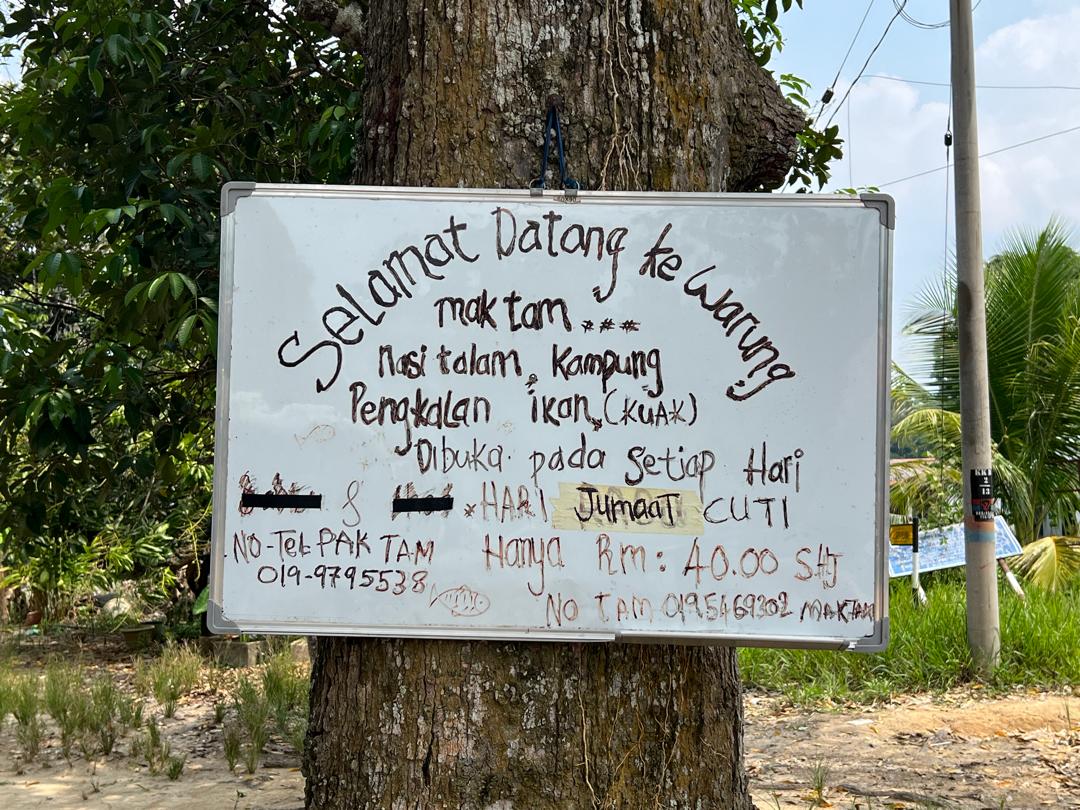 Selamat Datang ke Warung
mak tam ***
Nasi talam, Kampung
Pengkalan ikan, (KUAK)
Dibuka pada setiap Hari
& *HARI JUMAAT CUTI
NO-Tel PAK TAM Hanya Rm: 40.00 SHJ
019-9795538
NO TAM 0195469302 MAKTAM